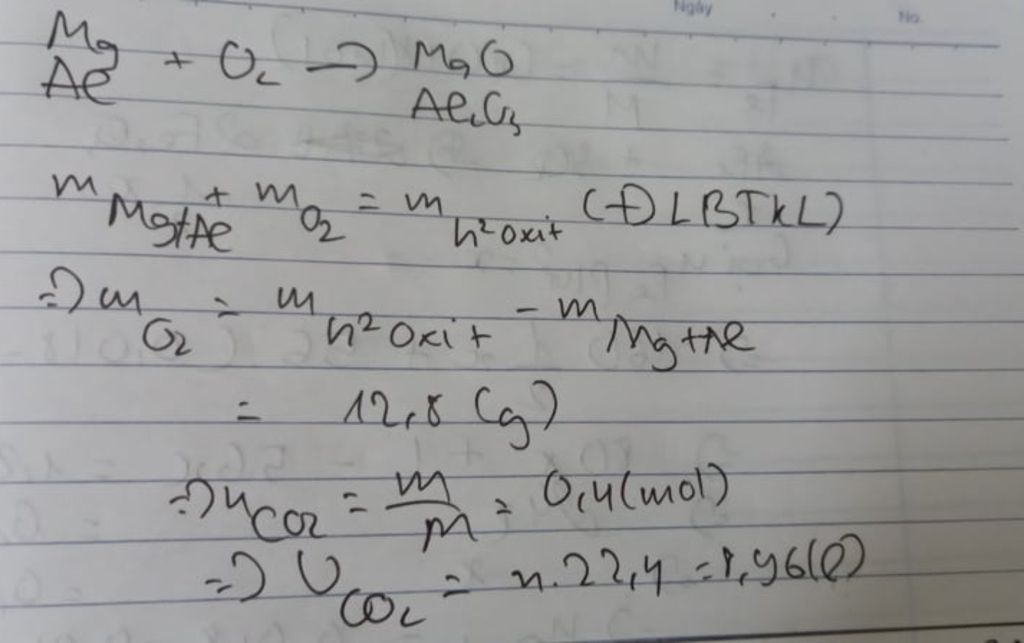 Ngày No.
Mg + O₂ → MgO
Al Al₂O₃
m Mg+Al + m O₂ = m h² oxit (ĐLBTKL)
=> m O₂ = m h² oxit - m Mg+Al
= 12,8 (g)
=> n CO₂ = m/M = 0,4 (mol)
=> V CO₂ = n.22,4 = 8,96 (l)